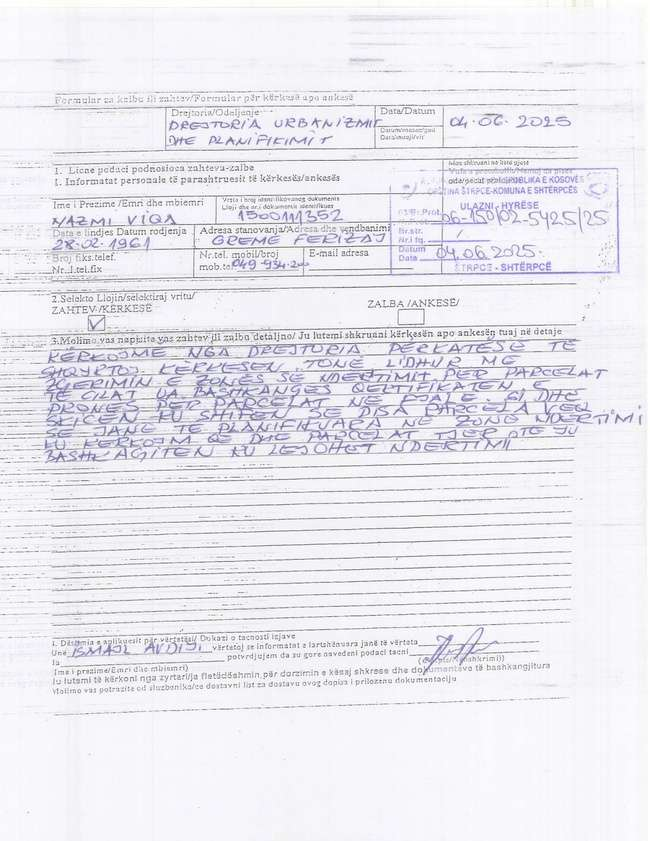 Formular za kalbu ili zahtev/Formular për kërkesë apo ankesë
Drejtoria/Odeljenje
DREJTORIA URBANIZMIT
DHE PLANIFIKIMIT
Data/Datum
04.06.2025
1. Licne podaci podnosioca zahteva-zalbe
1. Informatat personale të parashtruesit të kërkesës/ankesës
REPUBLIKA E KOSOVËS
OPŠTINA ŠTRPCE-KOMUNA E SHTËRPCËS
ULAZNI - HYRËSE
06-150/02-5425/25
Nr.str.
Nr.i fq. /
Datum
Data 04.06.2025.
ŠTRPCE - SHTËRPCË
Ime i Prezime /Emri dhe mbiemri
NAZMI VIQA
Vrsta i broj identifikovanog dokumenta
Lloji dhe nr.i dokumentit identifikues
1500111352
Data e lindjes Datum rodjenja
28.02.1961
Adresa stanovanja/Adresa dhe vendbanimi
GREME FERIZAJ
Broj fiks.telef.
Nr..l.tel.fix
Nr.tel. mobil/broj
mob.tel. 049-934-200
E-mail adresa
2.Selekto Llojin/selektiraj vrstu/
ZAHTEV /KËRKESË
ZALBA /ANKESË/
3.Molimo vas napisite vas zahtev ili zalba detaljno/ Ju lutemi shkruani kërkesën apo ankesën tuaj në detaje
KËRKOJME NGA DREJTORIA PËRKATËSE TË
SHQYRTOJ KËRKESEN TONË LIDHUR ME
ZGJERIMIN E ZONËS SË NDERTIMIT PER PARCELAT
TË CILAT UA BASHKANGES QERTIFIKATEN E
PRONES PER PARCELAT NË FJALË. SI DHE
SKICEN KU SHIHEN SE DISA PARCELA VEQ
SE JANË TË PLANIFIKUARA NË ZONË NDËRTIMI
KU KERKOJM QË DHE PARCELAT TJER TE JU
BASHKAGITEN KU LEJOHET NDERTIMI
Dëshmia e aplikuesit për vërtetësi/ Dokazi o tacnosti izjave
Unë ISMAJL AVDIJI vërtetoj se informatat e lartshënuara janë të vërteta
Ja potvrdjujem da su gore navedeni podaci tacni
(Ime i prezime/Emri dhe mbiemri)
Ju lutemi të kërkoni nga zyrtari/ja fletëdëshmin për dorzimin e kësaj shkrese dhe dokumentave të bashkangjitura
Molimo vas potrazite od sluzbenika/ce dostavni list za dostavu ovog dopisa i prilozenu dokumentaciju